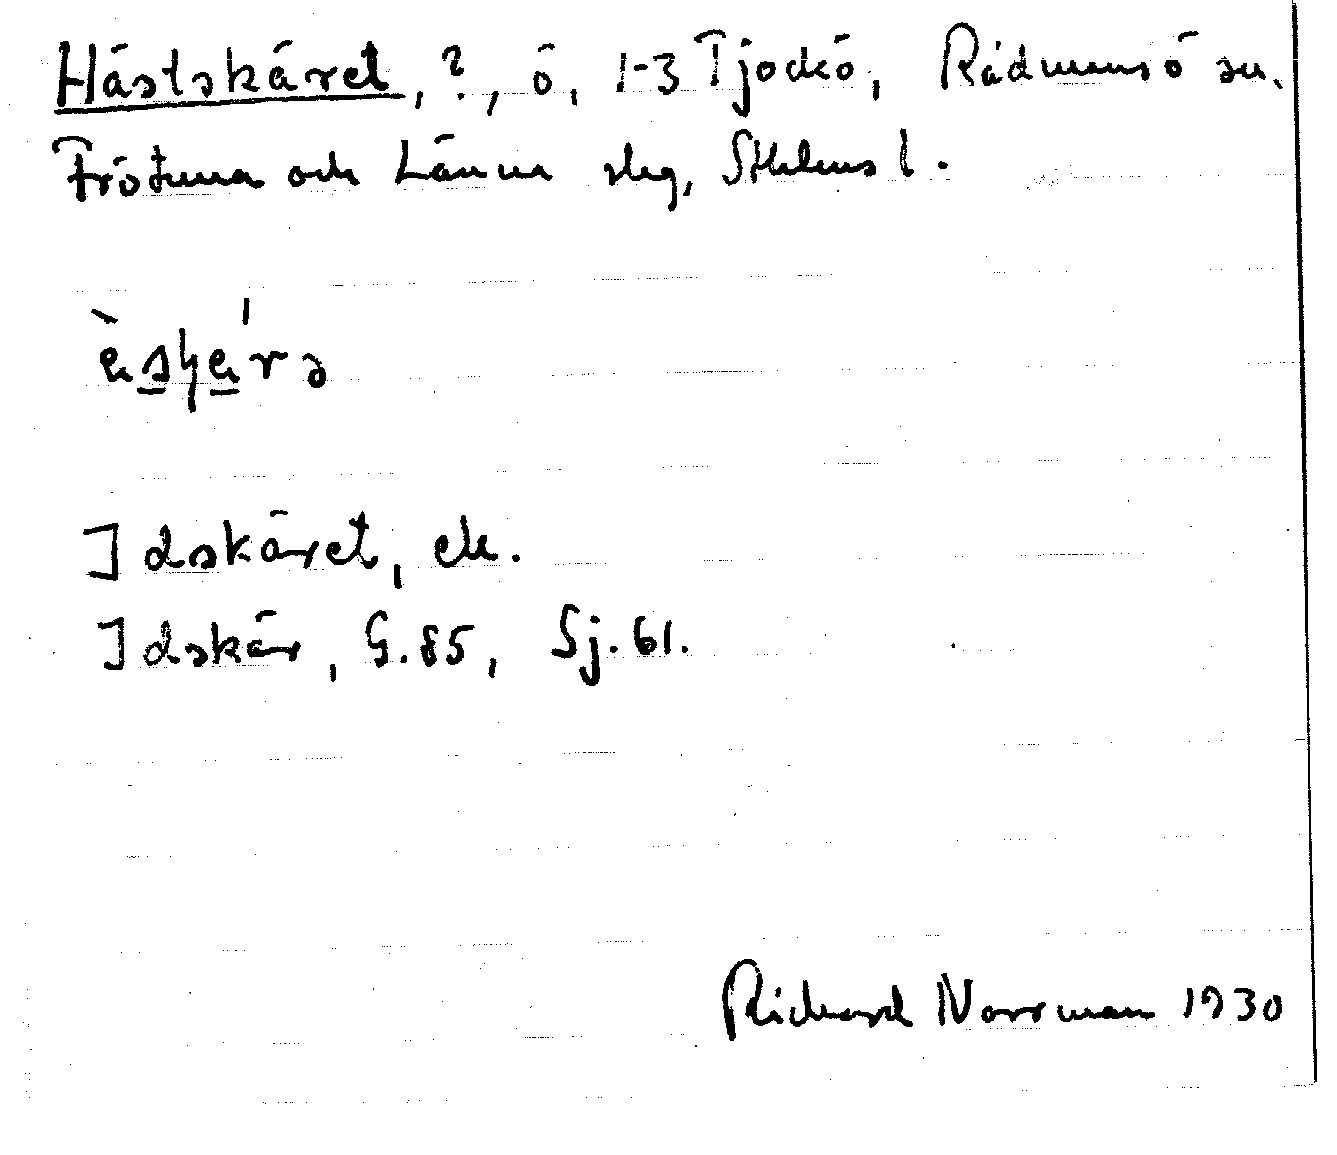 Hästskäret, ?, ö, 1-3 Tjockö, Rådmansö sn.
Frötuna och Länna slg, Sthlms l.
Idskäret, ek.
Idskär, G.85, Sj.61.
Richard Norrman 1930